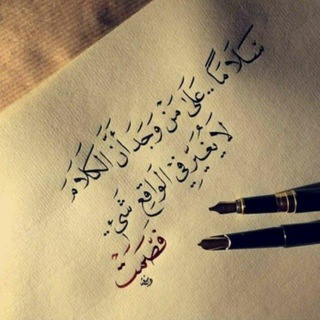 سَلَامًا.. عَلَىٰ مَنْ وَجَدَ أَنَّ الْكَلَامَ
لَا يُغَيِّرُ فِي الْوَاقِعِ شَيْءً
فَصَمَتَ